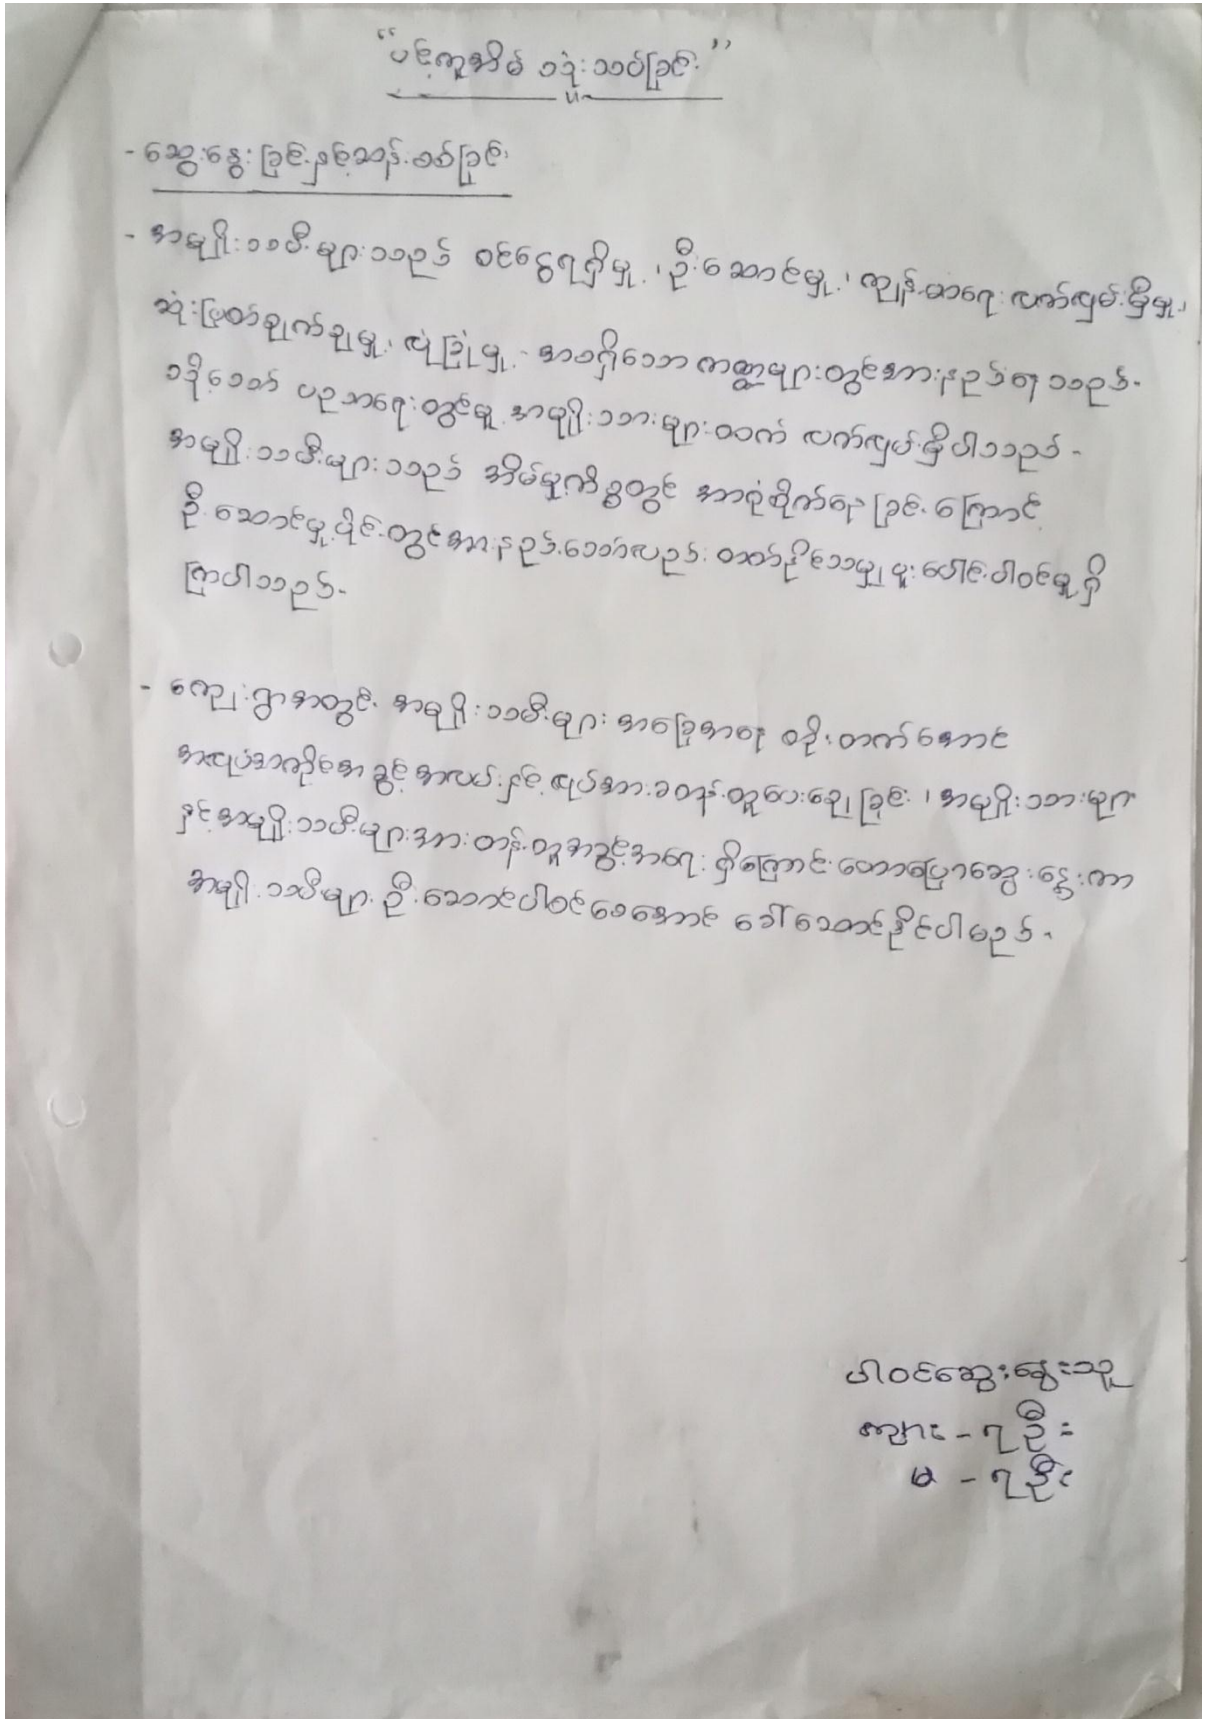 "ပင့်ကူအိမ် သုံးသပ်ခြင်း"
- ဆွေးနွေးခြင်းနှင့်ဆန်းစစ်ခြင်း
- အမျိုးသမီးများသည် ဝင်ငွေရရှိမှု၊ ဦးဆောင်မှု၊ ကျန်းမာရေး လက်လှမ်းမှီမှု၊
ဆုံးဖြတ်ချက်ချမှု၊ လုံခြုံမှု - အစရှိသော ကဏ္ဍများတွင်အားနည်းရသည်-
သို့သော် ပညာရေးတွင်မူ အမျိုးသားများထက် လက်လှမ်းမှီပါသည် -
အမျိုးသမီးများသည် အိမ်မှုကိစ္စတွင် အာရုံစိုက်နေခြင်းကြောင့်
ဦးဆောင်မှုပိုင်းတွင်အားနည်းသော်လည်း တတ်နိုင်သမျှပူးပေါင်းပါဝင်မှုရှိ
ကြပါသည်-
- ကျေးရွာအတွင်း အမျိုးသမီးများ အခြေအနေ တိုးတက်အောင်
အလုပ်အကိုင်အခွင့်အလမ်းနှင့် လုပ်အားခတန်းတူပေးချေခြင်း၊ အမျိုးသားများ
နှင့်အမျိုးသမီးများအားတန်းတူအခွင့်အရေးရှိကြောင်းဟောပြောဆွေးနွေးကာ
အမျိုးသမီများ ဦးဆောင်ပါဝင်စေအောင် ခေါ်ဆောင်နိုင်ပါမည်-
ပါဝင်ဆွေးနွေးသူ
ကျား - ၇ ဦး
မ - ၇ ဦး